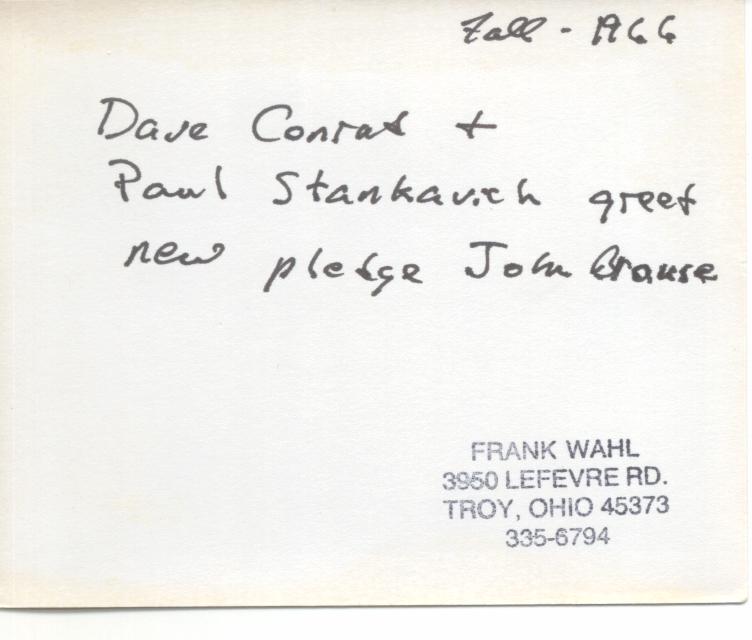 Fall - 1966
Dave Conrad +
Paul Stankavich greet
new pledge John Krause
FRANK WAHL
3950 LEFEVRE RD.
TROY, OHIO 45373
335-6794